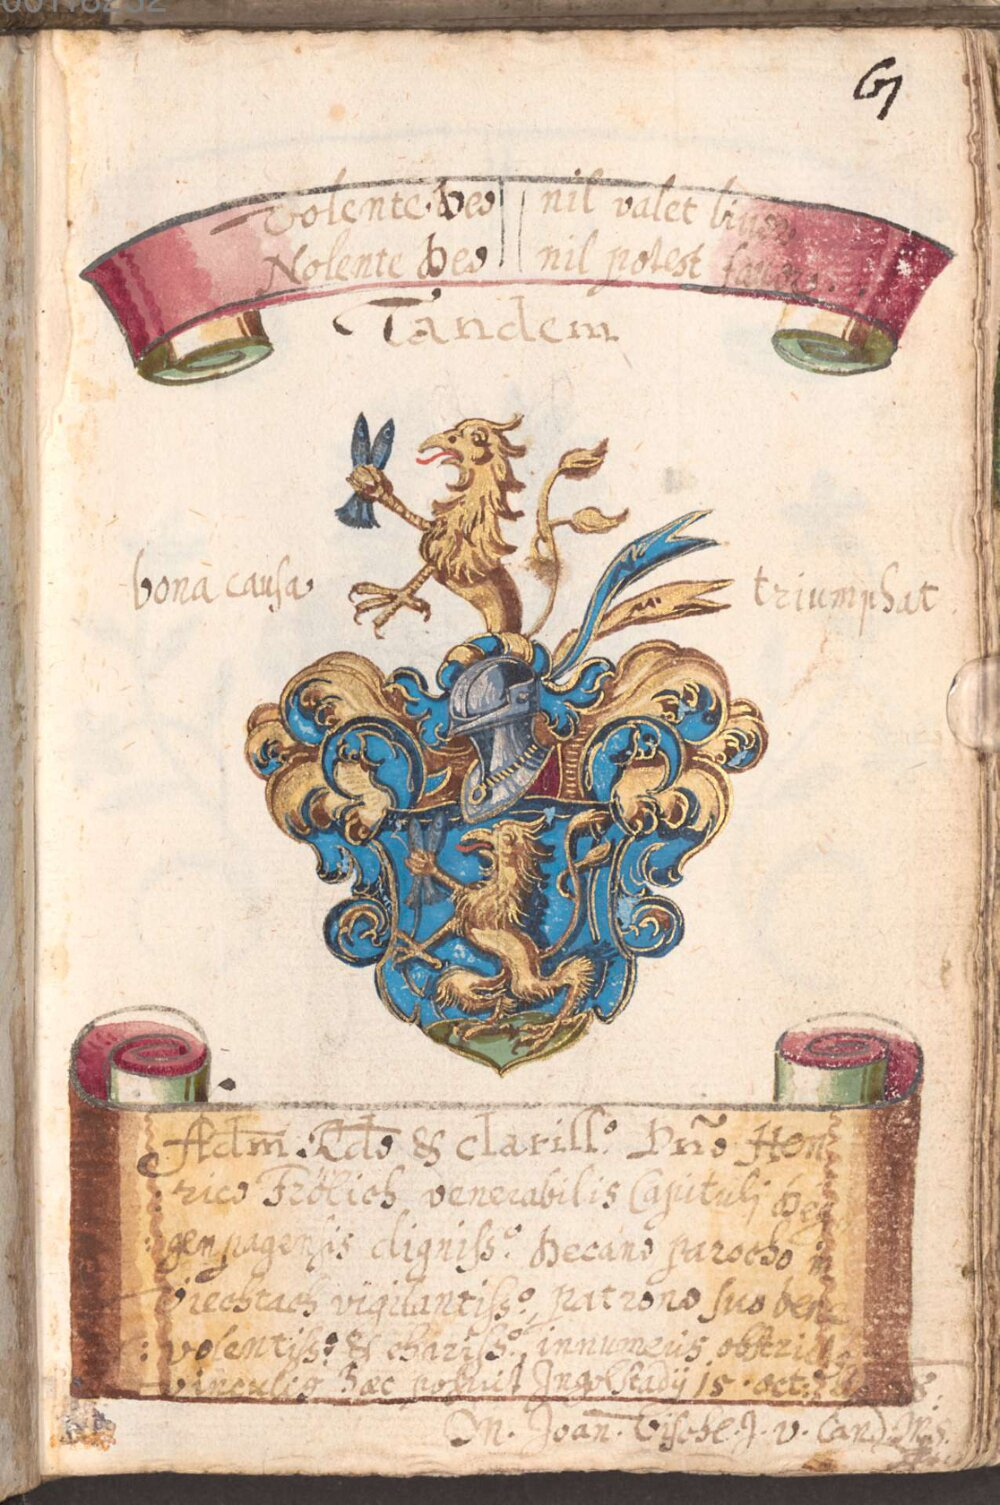 67
Volente Deo nil valet livor
Nolente Deo nil potest favor.
Tandem
bona causa triumphat
Adm. Rdo & clariss.o Dño Hen
rico Frölich venerabilis Capituli Deg
genpagensis digniss.o Decano parocho in
Viechtach vigilantiss.o, patrono suo bene
volentiss.o & chariss.o, innumeris obstric
vinculis hæc posuit Ingolstadij 15 oct.
M. Joan. Vischl. J. V. Cand.